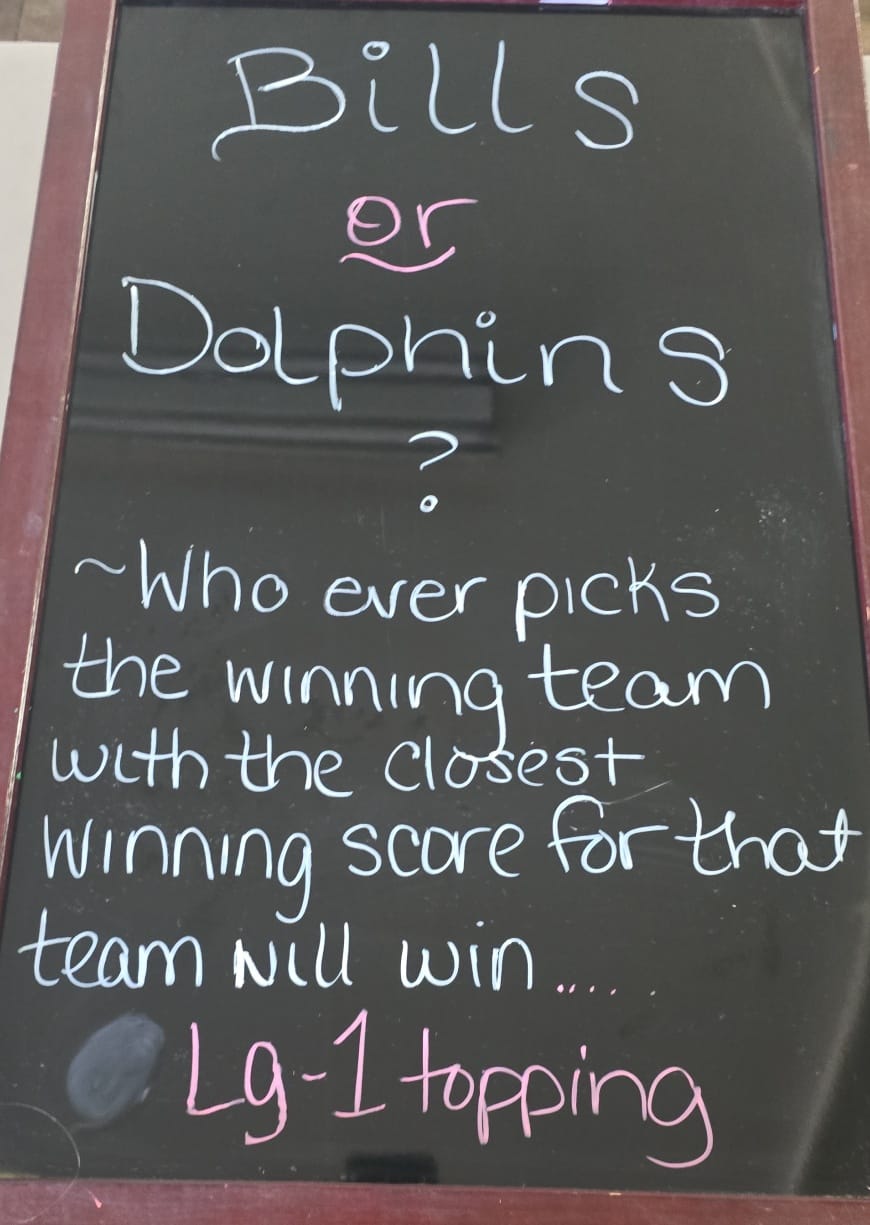 Bills
or
Dolphins
?
~Who ever picks
the winning team
with the closest
winning score for that
team will win.....
Lg-1 topping